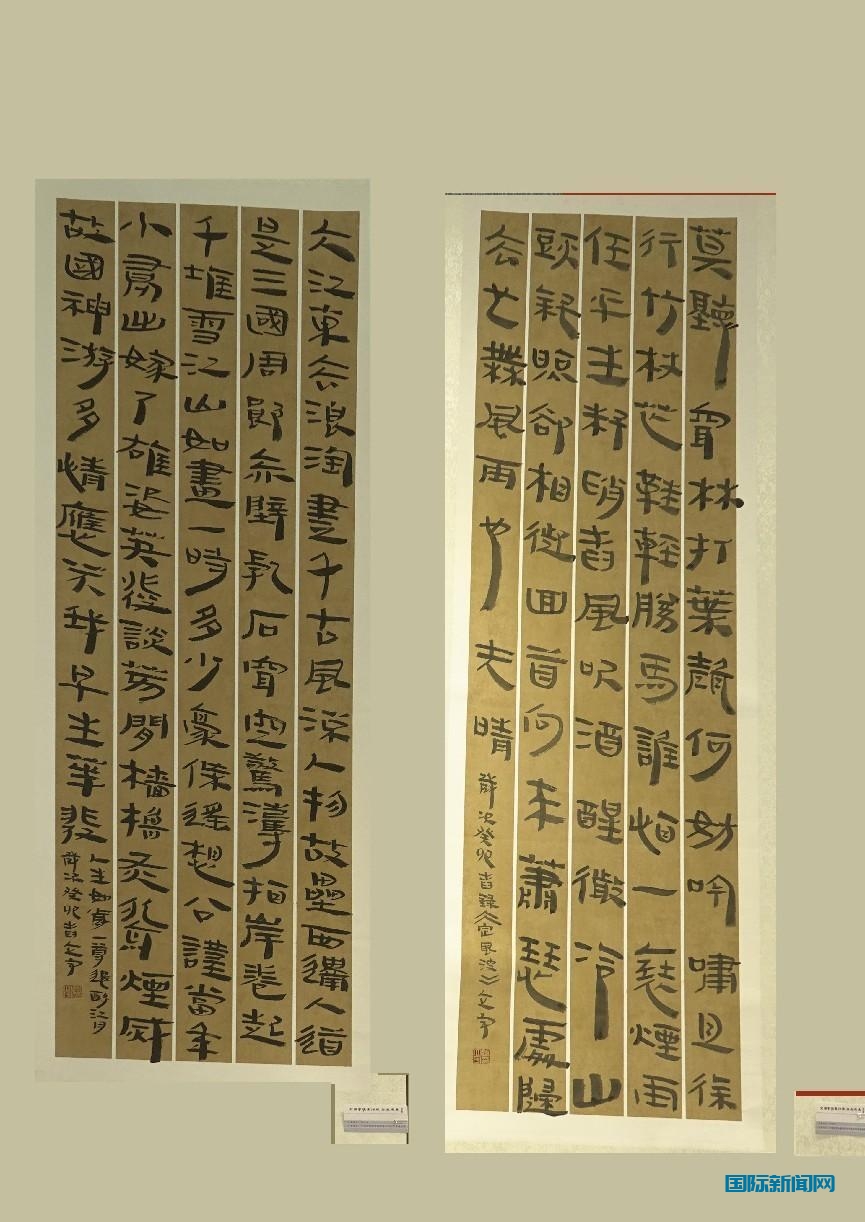 大江東去浪淘盡千古風流人物故壘西邊人道
是三國周郎赤壁亂石穿空驚濤拍岸卷起
千堆雪江山如畫一時多少豪傑遙想公謹當年
小喬出嫁了雄姿英發談笑間檣櫓灰飛煙滅
故國神游多情應笑我早生華髮
人生如夢一尊還酹江月
癸卯春文宇
莫聽穿林打葉聲何妨吟嘯且徐
行竹杖芒鞋輕勝馬誰怕一蓑煙雨
任平生料峭春風吹酒醒微冷山
頭斜照卻相迎回首向來蕭瑟處歸
去也無風雨也无晴
癸卯春錄定風波文宇
国际新闻网